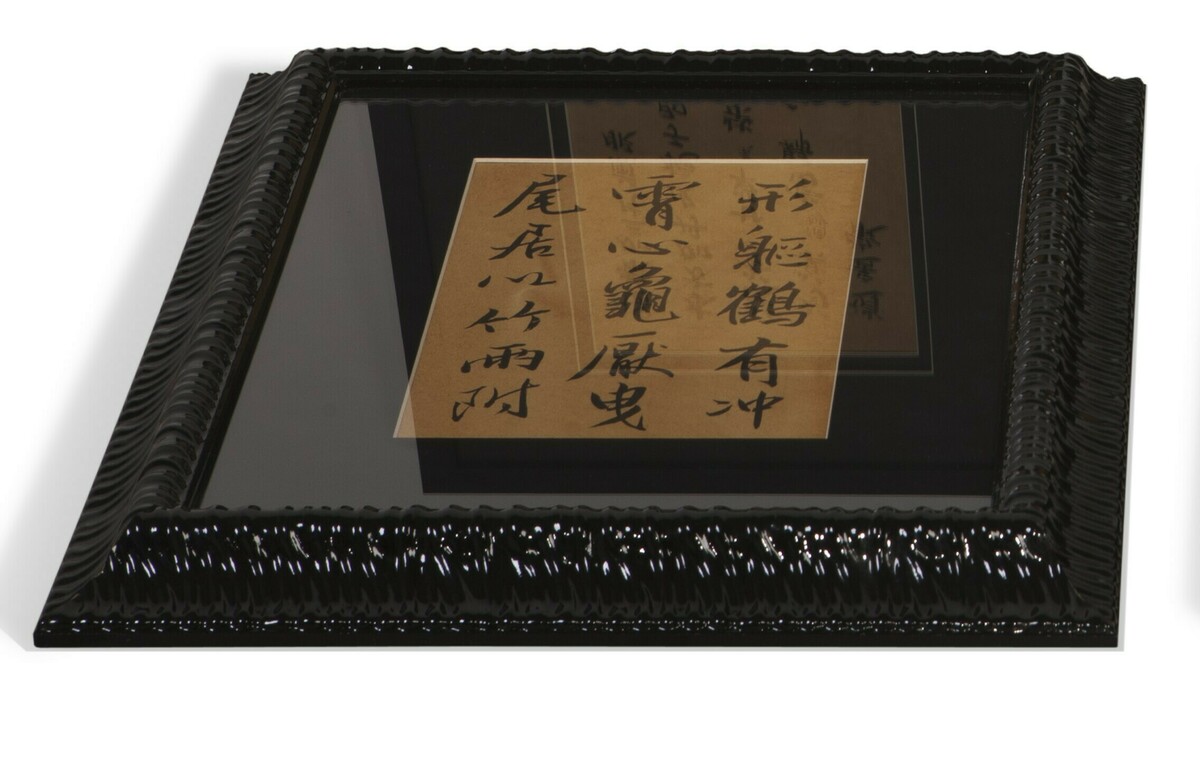 形軀鶴有冲
霄心龜厭曳
尾居以竹兩附